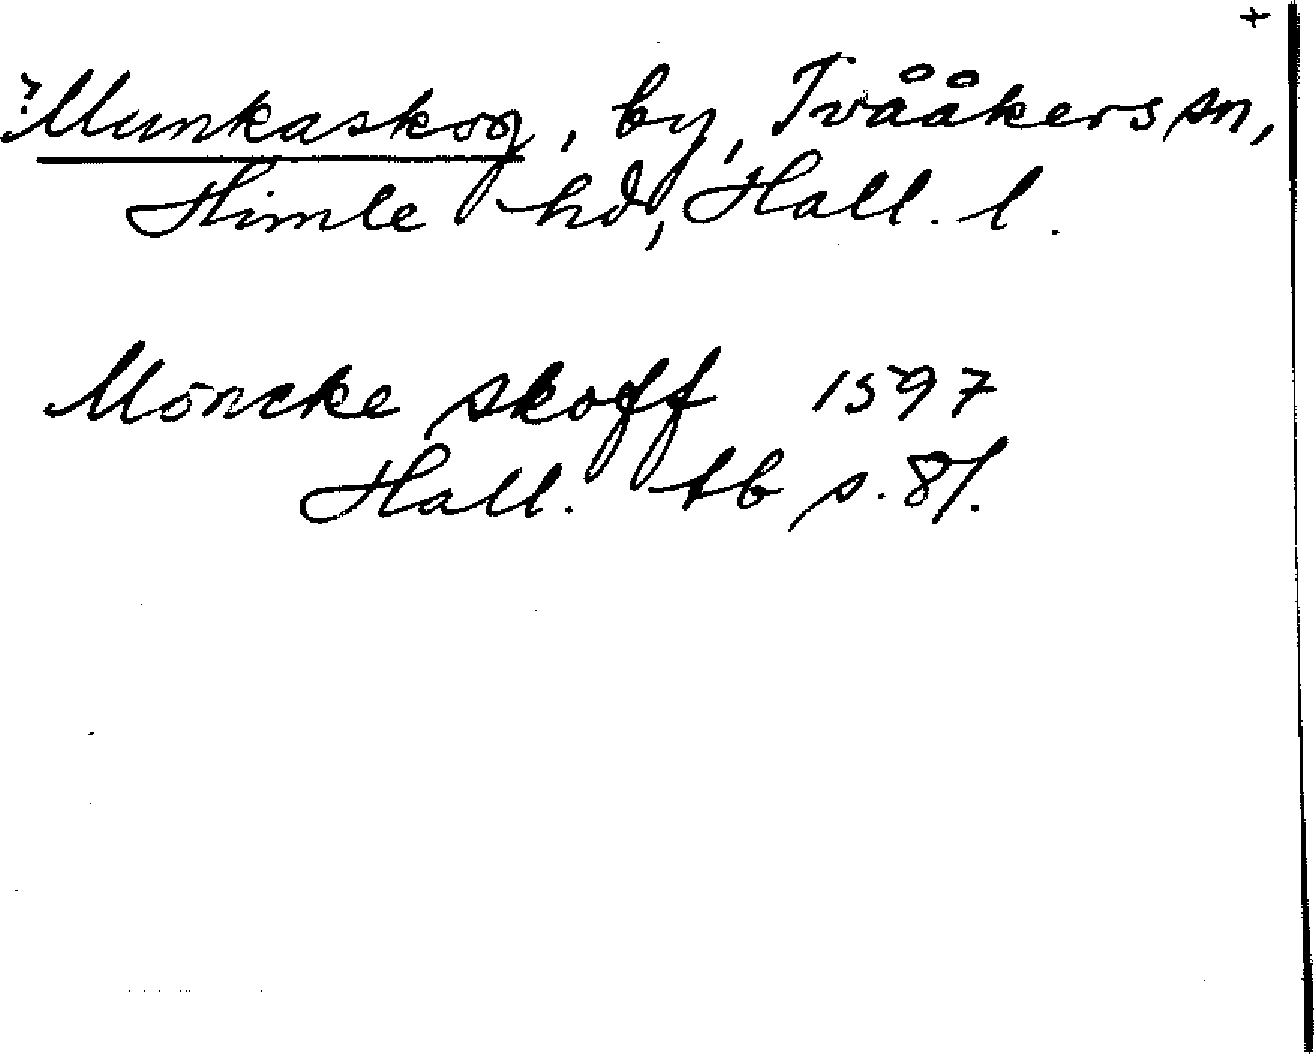 +
?Munkaskog, by, Tvååkers sn,
Himle hd, Hall. l.
Möncke skoff 1597
Hall. tb s. 81.